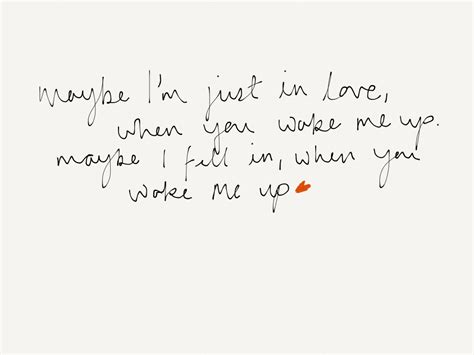 maybe I'm just in love,
when you wake me up.
maybe I fell in, when you
woke me up